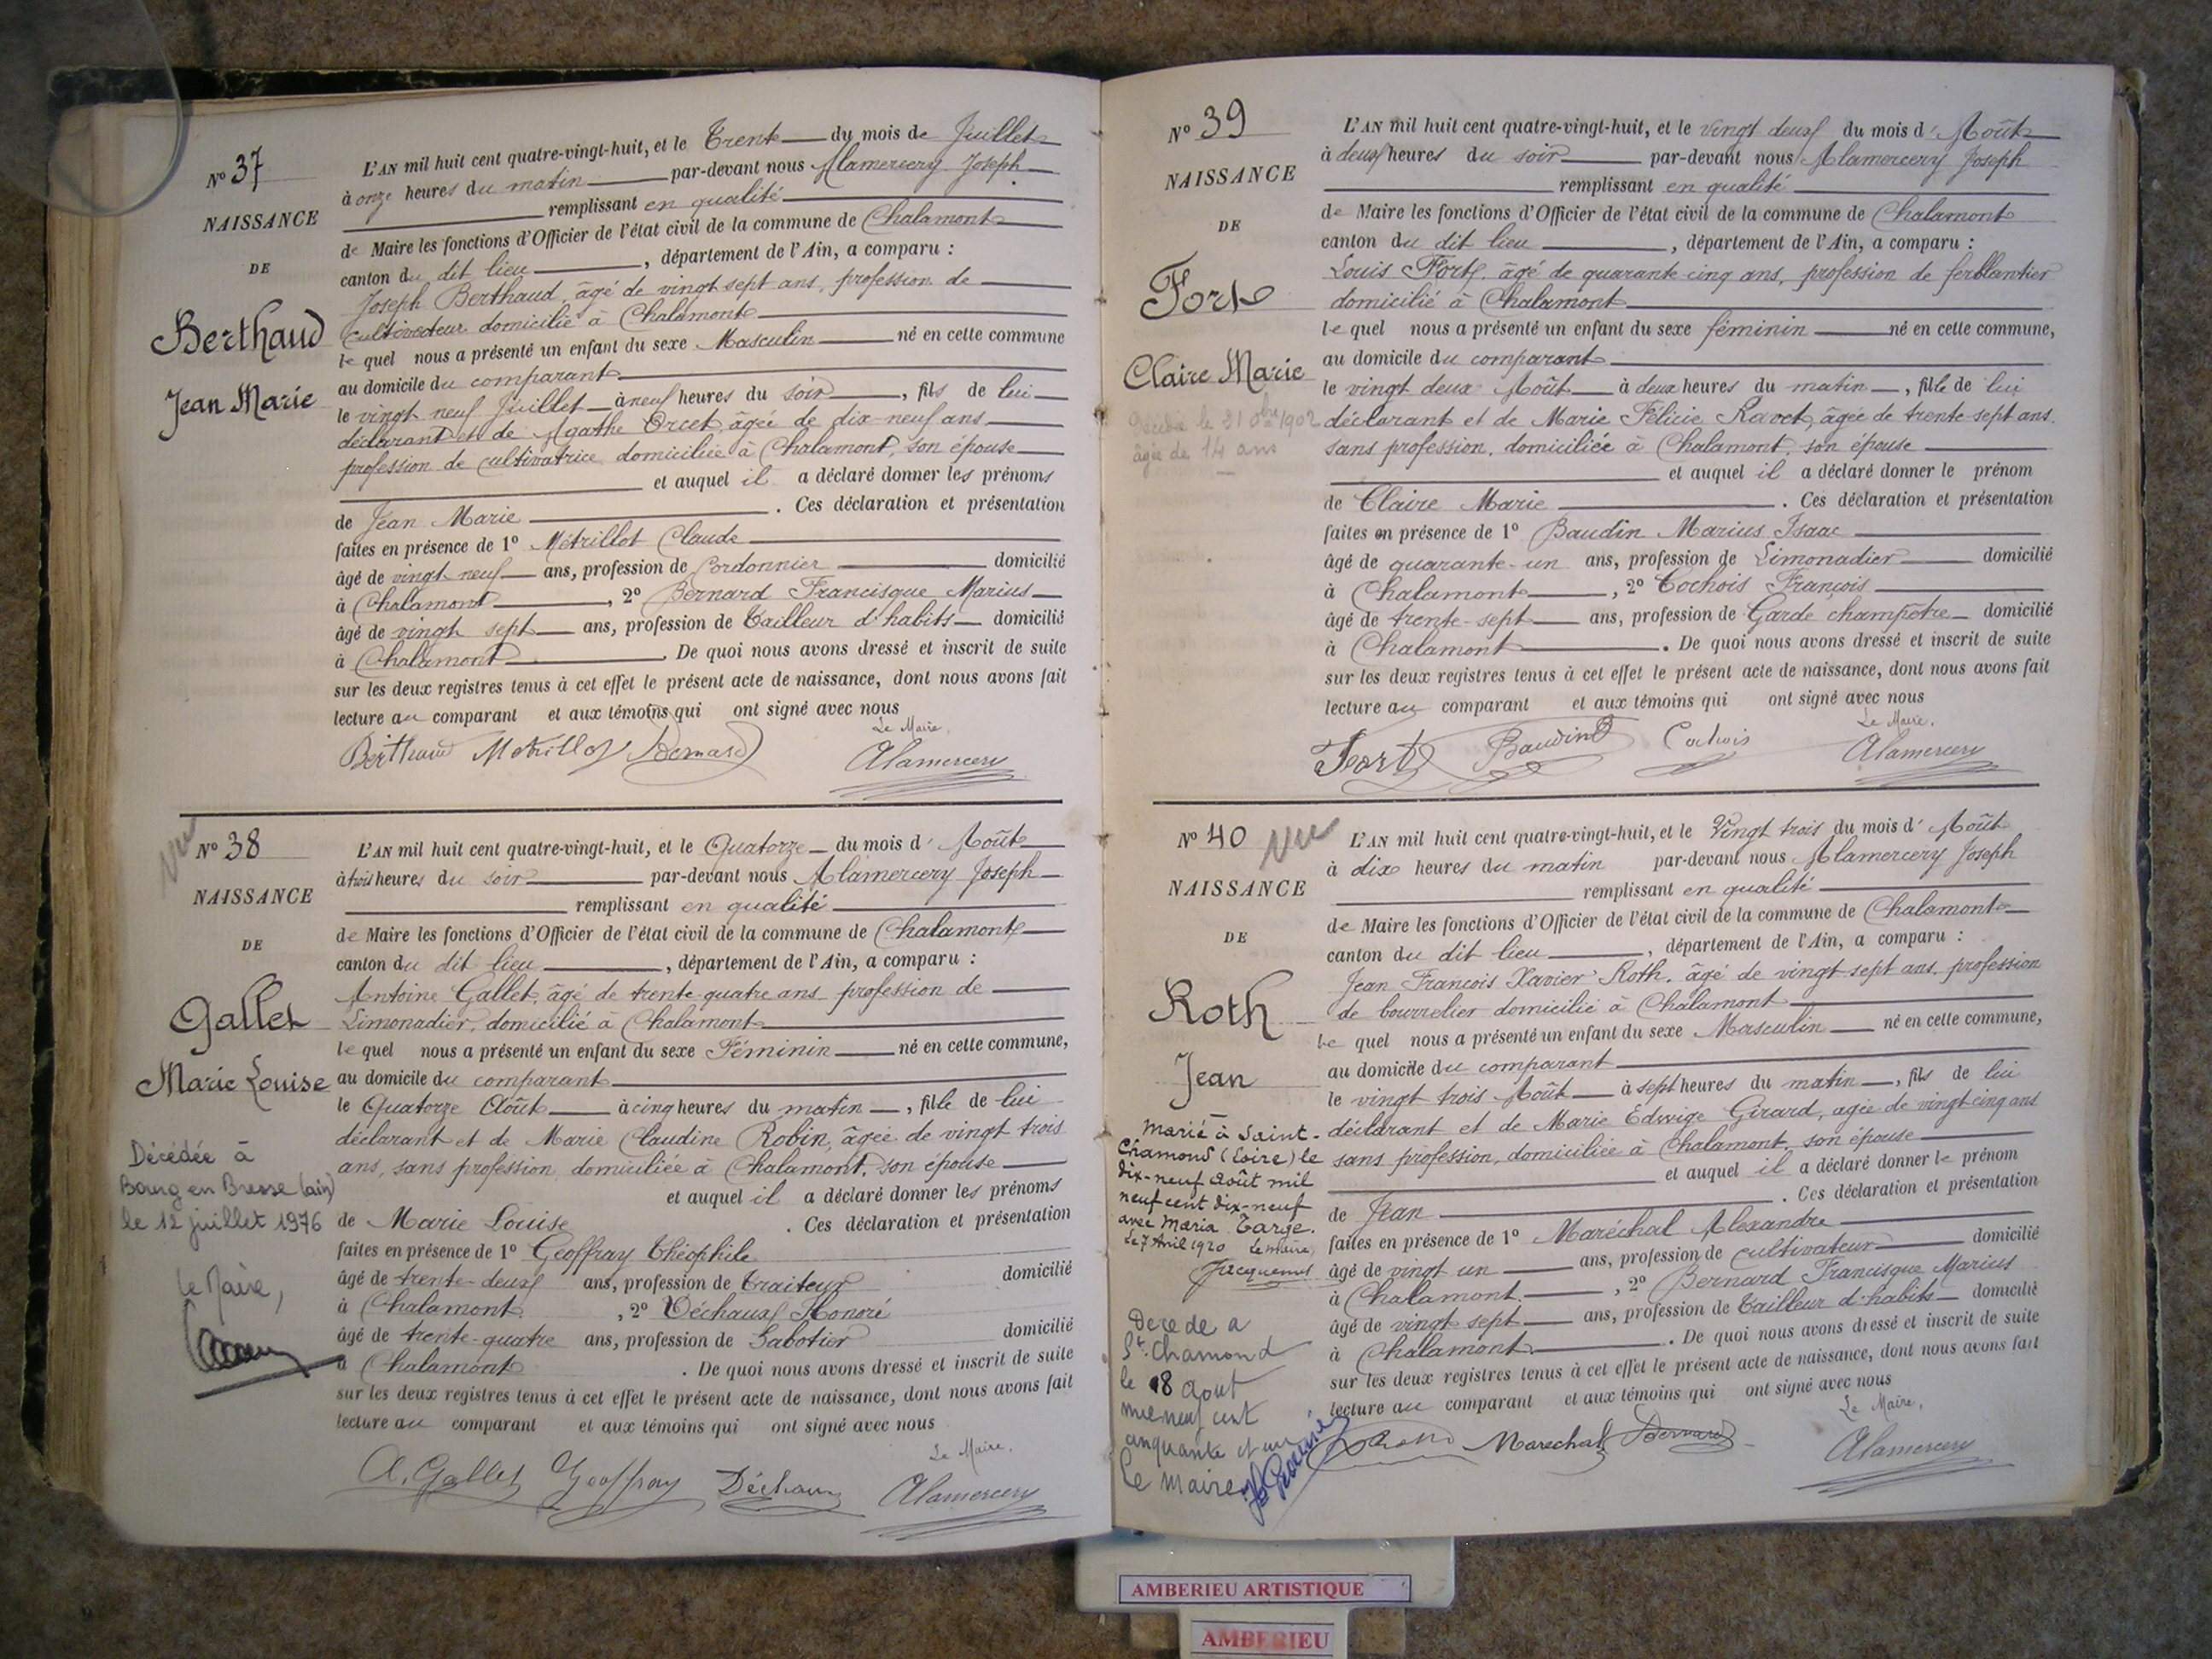 Nº 37
NAISSANCE
DE
Berthaud
Jean Marie
L'AN mil huit cent quatre-vingt-huit, et le Trente du mois de Juillet
à onze heures du matin par-devant nous Alamercery Joseph
remplissant en qualité
de Maire les fonctions d'Officier de l'état civil de la commune de Chalamont
canton du dit lieu, département de l'Ain, a comparu :
Joseph Berthaud, âgé de vingt sept ans, profession de
Cultivateur domicilié à Chalamont
le quel nous a présenté un enfant du sexe Masculin né en cette commune
au domicile du comparant
le vingt neuf Juillet à neuf heures du soir, fils de lui
déclarant et de Agathe Orcet âgée de dix-neuf ans
profession de cultivatrice domiciliée à Chalamont, son épouse
et auquel il a déclaré donner les prénoms
de Jean Marie. Ces déclaration et présentation
faites en présence de 1º Métrillot Claude
âgé de vingt neuf ans, profession de Cordonnier domicilié
à Chalamont, 2º Bernard Francisque Marius
âgé de vingt sept ans, profession de Tailleur d'habits domicilié
à Chalamont. De quoi nous avons dressé et inscrit de suite
sur les deux registres tenus à cet effet le présent acte de naissance, dont nous avons fait
lecture au comparant et aux témoins qui ont signé avec nous
Le Maire
Berthaud Métrillot Bernard Alamercery
Nº 38
vu
NAISSANCE
DE
Gallet
Marie Louise
Décédée à
Bourg en Bresse (ain)
le 12 juillet 1976
Le Maire,
L'AN mil huit cent quatre-vingt-huit, et le Quatorze du mois d'Août
à trois heures du soir par-devant nous Alamercery Joseph
remplissant en qualité
de Maire les fonctions d'Officier de l'état civil de la commune de Chalamont
canton du dit lieu, département de l'Ain, a comparu :
Antoine Gallet, âgé de trente quatre ans profession de
Limonadier, domicilié à Chalamont
le quel nous a présenté un enfant du sexe Féminin né en cette commune,
au domicile du comparant
le Quatorze Août à cinq heures du matin, fille de lui
déclarant et de Marie Claudine Robin, âgée de vingt trois
ans, sans profession, domiciliée à Chalamont, son épouse
et auquel il a déclaré donner les prénoms
de Marie Louise. Ces déclaration et présentation
faites en présence de 1º Geoffray Théophile
âgé de trente-deux ans, profession de Traiteur domicilié
à Chalamont, 2º Déchaux Honoré
âgé de trente-quatre ans, profession de Sabotier domicilié
à Chalamont. De quoi nous avons dressé et inscrit de suite
sur les deux registres tenus à cet effet le présent acte de naissance, dont nous avons fait
lecture au comparant et aux témoins qui ont signé avec nous
Le Maire.
A. Gallet Geoffray Déchaux Alamercery
Nº 39
NAISSANCE
DE
Fort
Claire Marie
Décédée le 21 Obre 1902
âgée de 14 ans
L'AN mil huit cent quatre-vingt-huit, et le vingt deux du mois d'Août
à deux heures du soir par-devant nous Alamercery Joseph
remplissant en qualité
de Maire les fonctions d'Officier de l'état civil de la commune de Chalamont
canton du dit lieu, département de l'Ain, a comparu :
Louis Fort, âgé de quarante cinq ans, profession de ferblantier
domicilié à Chalamont
le quel nous a présenté un enfant du sexe féminin né en cette commune,
au domicile du comparant
le vingt deux Août à deux heures du matin, fille de lui
déclarant et de Marie Félicie Ravet, âgée de trente-sept ans
sans profession, domiciliée à Chalamont, son épouse
et auquel il a déclaré donner le prénom
de Claire Marie. Ces déclaration et présentation
faites en présence de 1º Baudin Marius Isaac
âgé de quarante-un ans, profession de Limonadier domicilié
à Chalamont, 2º Cochois François
âgé de trente-sept ans, profession de Garde champêtre domicilié
à Chalamont. De quoi nous avons dressé et inscrit de suite
sur les deux registres tenus à cet effet le présent acte de naissance, dont nous avons fait
lecture au comparant et aux témoins qui ont signé avec nous
Le Maire.
Fort Baudin Cochois Alamercery
Nº 40
vu
NAISSANCE
DE
Roth
Jean
Marié à Saint-
Chamond (Loire) le
dix-neuf août mil
neuf cent dix-neuf
avec Maria Targe.
Le 7 Avril 1920 Le maire,
Jacquemet
Décédé à
St. Chamond
le 18 aout
mil neuf cent
cinquante et un
Le Maire
L'AN mil huit cent quatre-vingt-huit, et le Vingt trois du mois d'Août
à dix heures du matin par-devant nous Alamercery Joseph
remplissant en qualité
de Maire les fonctions d'Officier de l'état civil de la commune de Chalamont
canton du dit lieu, département de l'Ain, a comparu :
Jean François Xavier Roth, âgé de vingt sept ans, profession
de bourrelier domicilié à Chalamont
le quel nous a présenté un enfant du sexe Masculin né en cette commune,
au domicile du comparant
le vingt trois Août à sept heures du matin, fils de lui
déclarant et de Marie Edwige Girard, agée de vingt cinq ans
sans profession, domiciliée à Chalamont, son épouse
et auquel il a déclaré donner le prénom
de Jean. Ces déclaration et présentation
faites en présence de 1º Maréchal Alexandre
âgé de vingt un ans, profession de cultivateur domicilié
à Chalamont, 2º Bernard Francisque Marius
âgé de vingt sept ans, profession de Tailleur d'habits domicilié
à Chalamont. De quoi nous avons dressé et inscrit de suite
sur les deux registres tenus à cet effet le présent acte de naissance, dont nous avons fait
lecture au comparant et aux témoins qui ont signé avec nous
Le Maire.
Roth Marechal Bernard Alamercery
AMBERIEU ARTISTIQUE
AMBERIEU